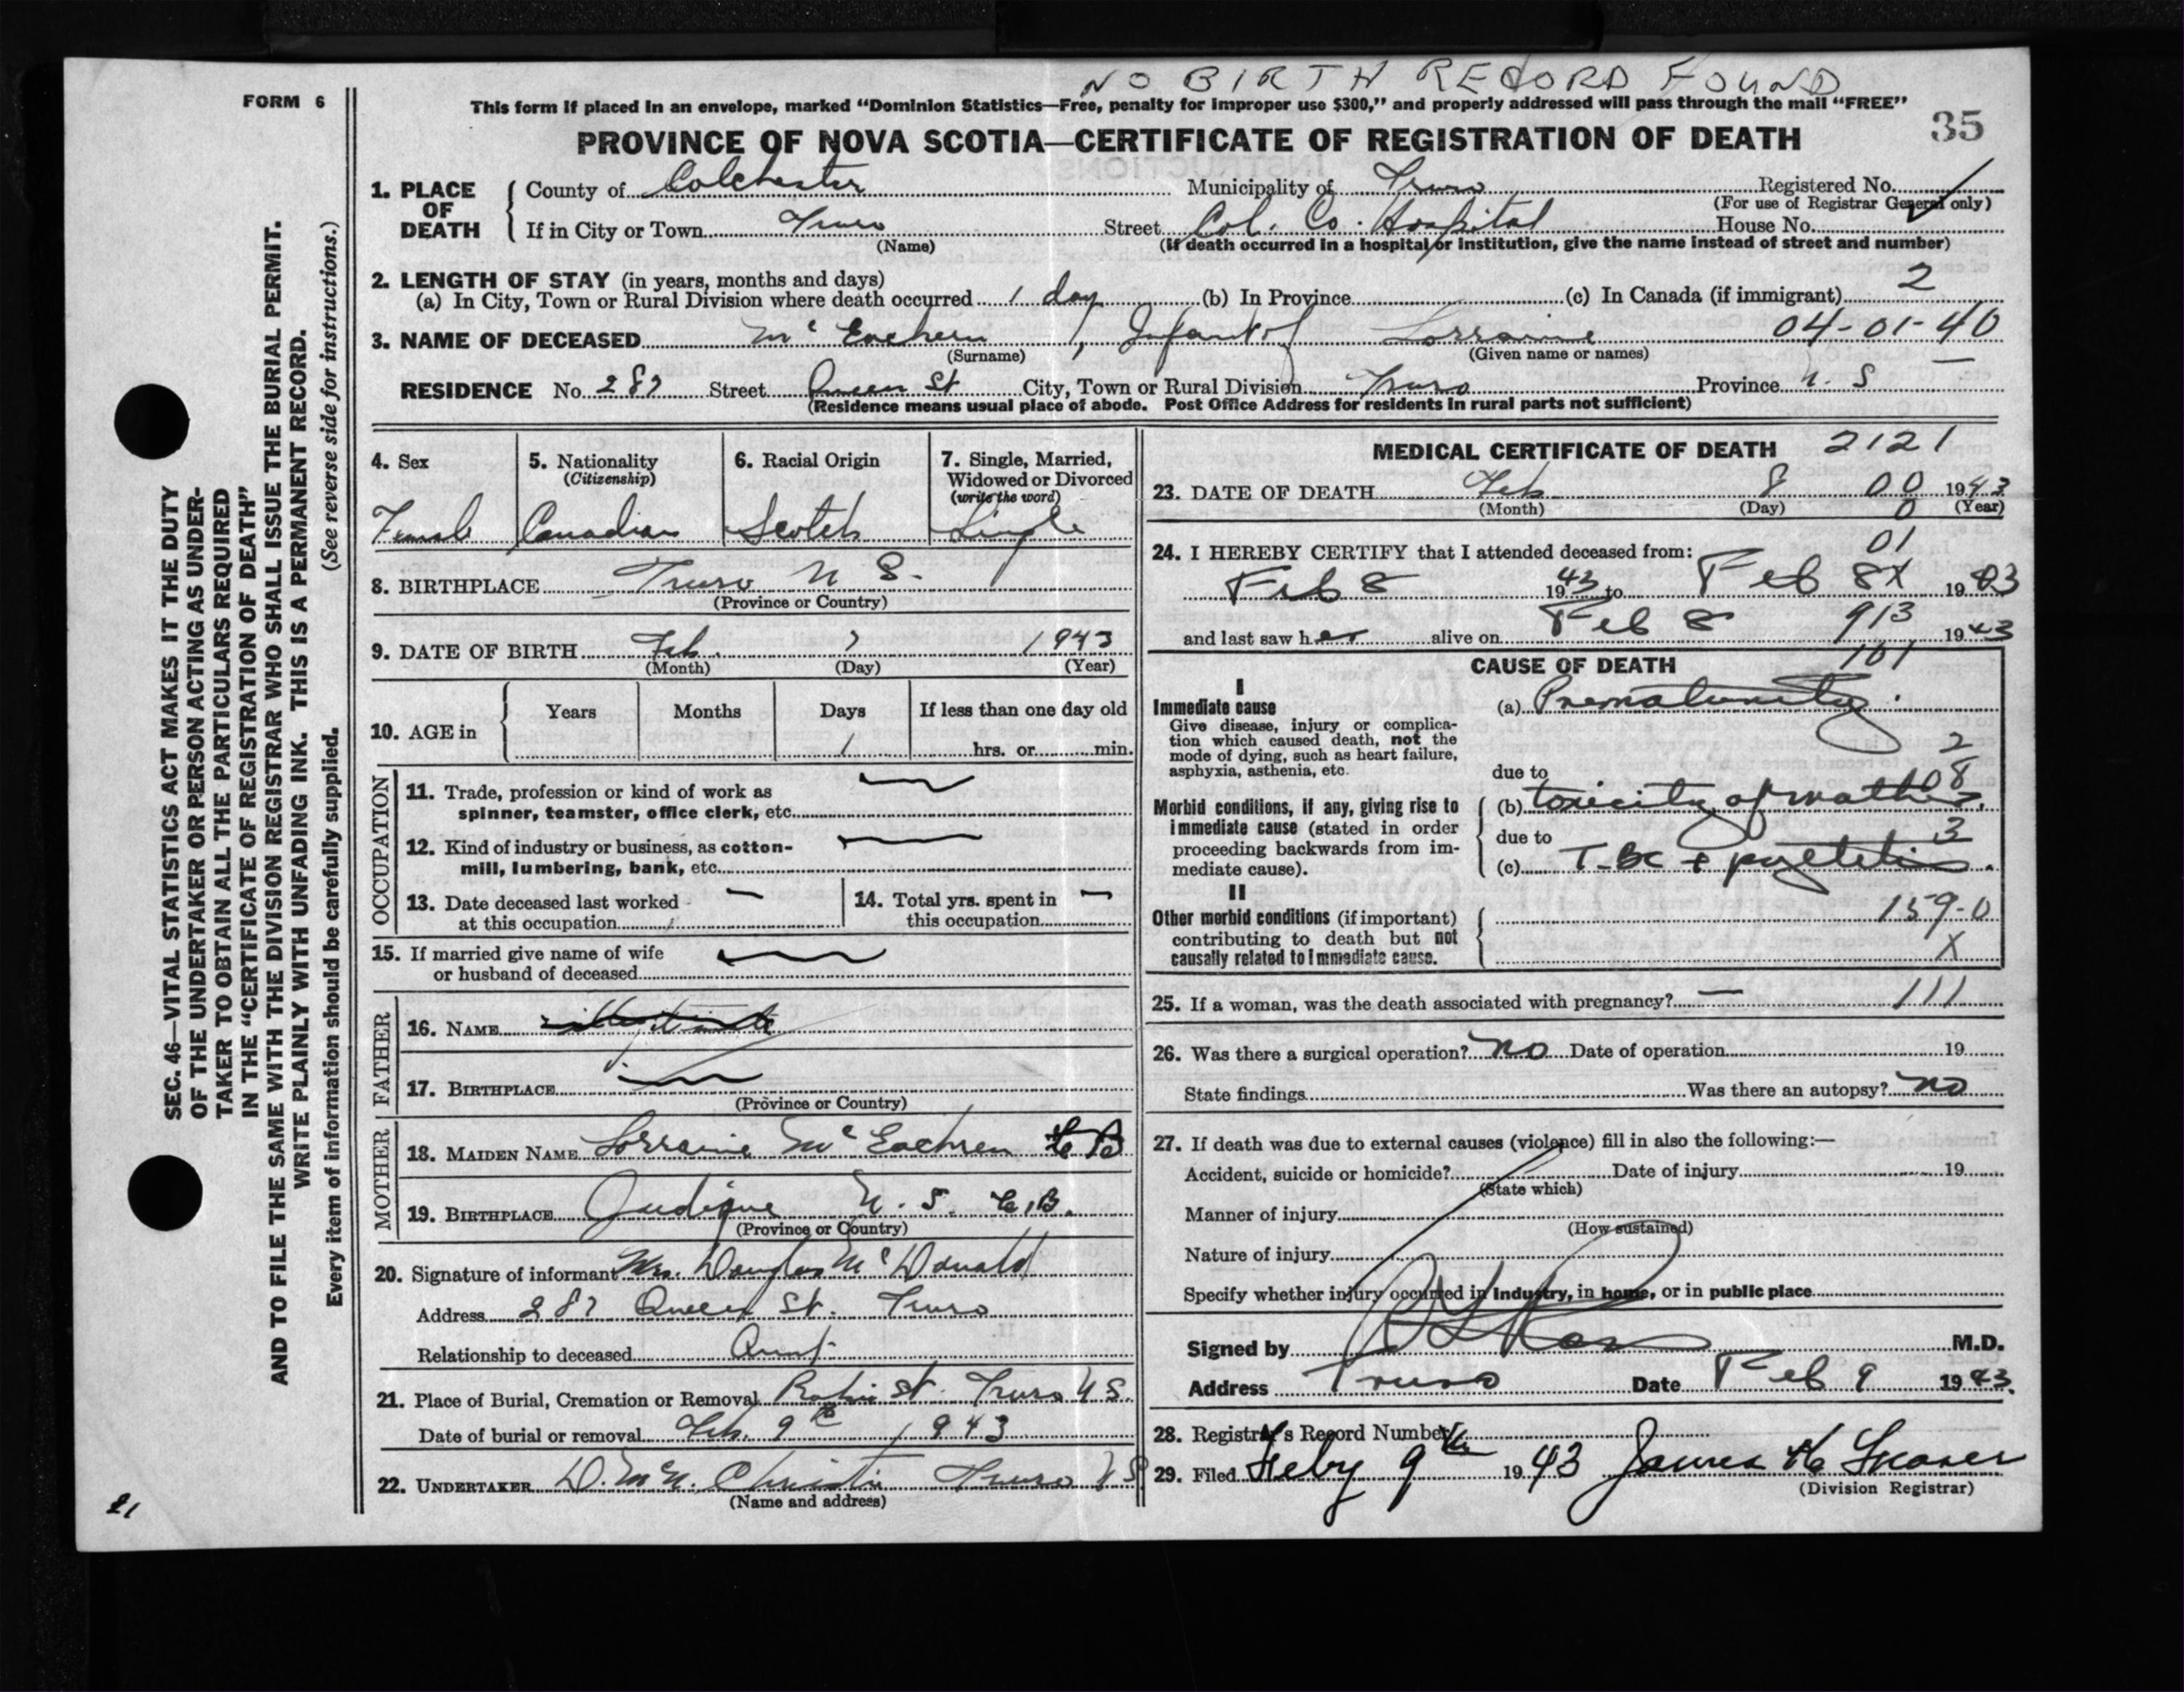 NO BIRTH RECORD FOUND
FORM 6
This form if placed in an envelope, marked “Dominion Statistics—Free, penalty for improper use $300,” and properly addressed will pass through the mail “FREE”
35
PROVINCE OF NOVA SCOTIA—CERTIFICATE OF REGISTRATION OF DEATH
1. PLACE OF DEATH
County of Colchester Municipality of Truro Registered No.
(For use of Registrar General only)
If in City or Town Truro Street Col. Co. Hospital House No.
(Name) (If death occurred in a hospital or institution, give the name instead of street and number)
2. LENGTH OF STAY (in years, months and days)
(a) In City, Town or Rural Division where death occurred 1 day (b) In Province (c) In Canada (if immigrant) 2
3. NAME OF DECEASED McEachern, Infant of Lorraine 04-01-40
(Surname) (Given name or names)
RESIDENCE No. 287 Street Queen St City, Town or Rural Division Truro Province N. S
(Residence means usual place of abode. Post Office Address for residents in rural parts not sufficient)
4. Sex 5. Nationality (Citizenship) 6. Racial Origin 7. Single, Married, Widowed or Divorced (write the word)
Female Canadian Scotch Single
8. BIRTHPLACE Truro N S.
(Province or Country)
9. DATE OF BIRTH Feb. 7 1943
(Month) (Day) (Year)
10. AGE in Years Months Days If less than one day old
1 hrs. or min.
OCCUPATION
11. Trade, profession or kind of work as
spinner, teamster, office clerk, etc.
12. Kind of industry or business, as cotton-
mill, lumbering, bank, etc.
13. Date deceased last worked
at this occupation
14. Total yrs. spent in
this occupation
15. If married give name of wife
or husband of deceased
FATHER
16. NAME
17. BIRTHPLACE
(Province or Country)
MOTHER
18. MAIDEN NAME Lorraine McEachren
19. BIRTHPLACE Judique N. S. C.B.
(Province or Country)
20. Signature of informant Mrs. Douglas McDonald
Address 287 Queen St. Truro
Relationship to deceased Aunt
21. Place of Burial, Cremation or Removal Robie St. Truro N S.
Date of burial or removal Feb. 9th 1943
22. UNDERTAKER D. McN. Christie Truro N S
(Name and address)
MEDICAL CERTIFICATE OF DEATH 2121
23. DATE OF DEATH Feb 8 00 1943
(Month) (Day) 0 (Year)
24. I HEREBY CERTIFY that I attended deceased from: 01
Feb 8 1943 to Feb 8 X 1943
and last saw her alive on Feb 8 913 1943
CAUSE OF DEATH 101
I
Immediate cause
Give disease, injury or complica-
tion which caused death, not the
mode of dying, such as heart failure,
asphyxia, asthenia, etc.
(a) Prematurity.
2
due to 08
Morbid conditions, if any, giving rise to
immediate cause (stated in order
proceeding backwards from im-
mediate cause).
(b) toxicity of mother.
due to 3
(c) T-BC + pyelitis.
II
Other morbid conditions (if important)
contributing to death but not
causally related to immediate cause.
159-0
X
25. If a woman, was the death associated with pregnancy? — 111
26. Was there a surgical operation? no Date of operation 19
State findings Was there an autopsy? no
27. If death was due to external causes (violence) fill in also the following:—
Accident, suicide or homicide? Date of injury 19
(State which)
Manner of injury
(How sustained)
Nature of injury
Specify whether injury occurred in Industry, in home, or in public place
Signed by M.D.
Address Truro Date Feb 9 1943.
28. Registrar's Record Number
29. Filed Feby 9th 1943 James H
(Division Registrar)
SEC. 46—VITAL STATISTICS ACT MAKES IT THE DUTY
OF THE UNDERTAKER OR PERSON ACTING AS UNDER-
TAKER TO OBTAIN ALL THE PARTICULARS REQUIRED
IN THE “CERTIFICATE OF REGISTRATION OF DEATH”
AND TO FILE THE SAME WITH THE DIVISION REGISTRAR WHO SHALL ISSUE THE BURIAL PERMIT.
WRITE PLAINLY WITH UNFADING INK. THIS IS A PERMANENT RECORD.
Every item of information should be carefully supplied. (See reverse side for instructions.)
21